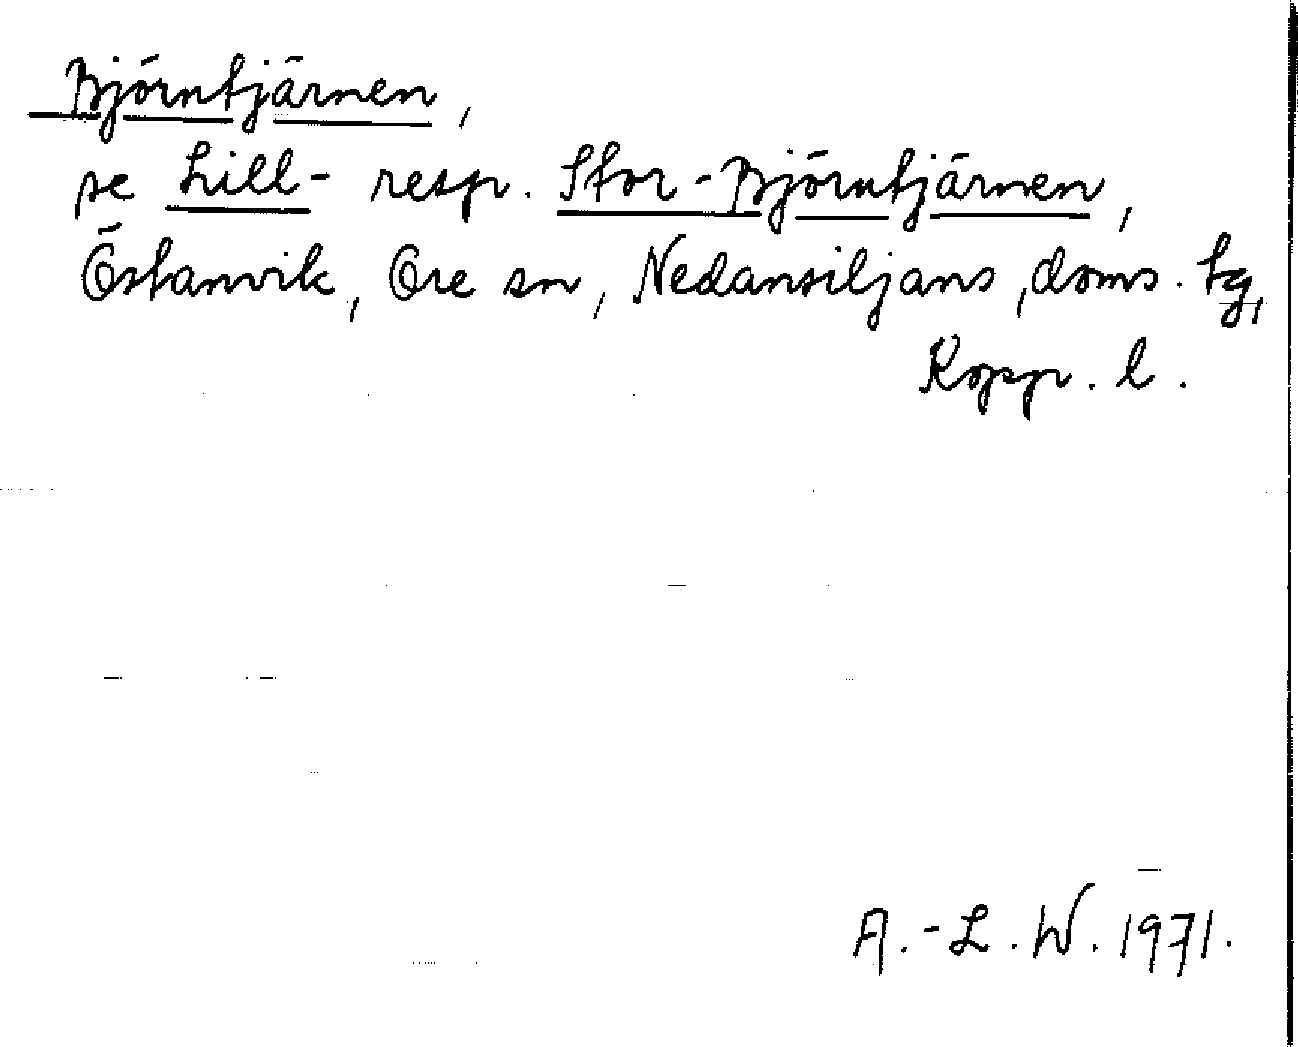 Björntjärnen,
se Lill- resp. Stor-Björntjärnen,
Östanvik, Ore sn, Nedansiljans, doms. tg,
Kopp. l.
A.-L. W. 1971.